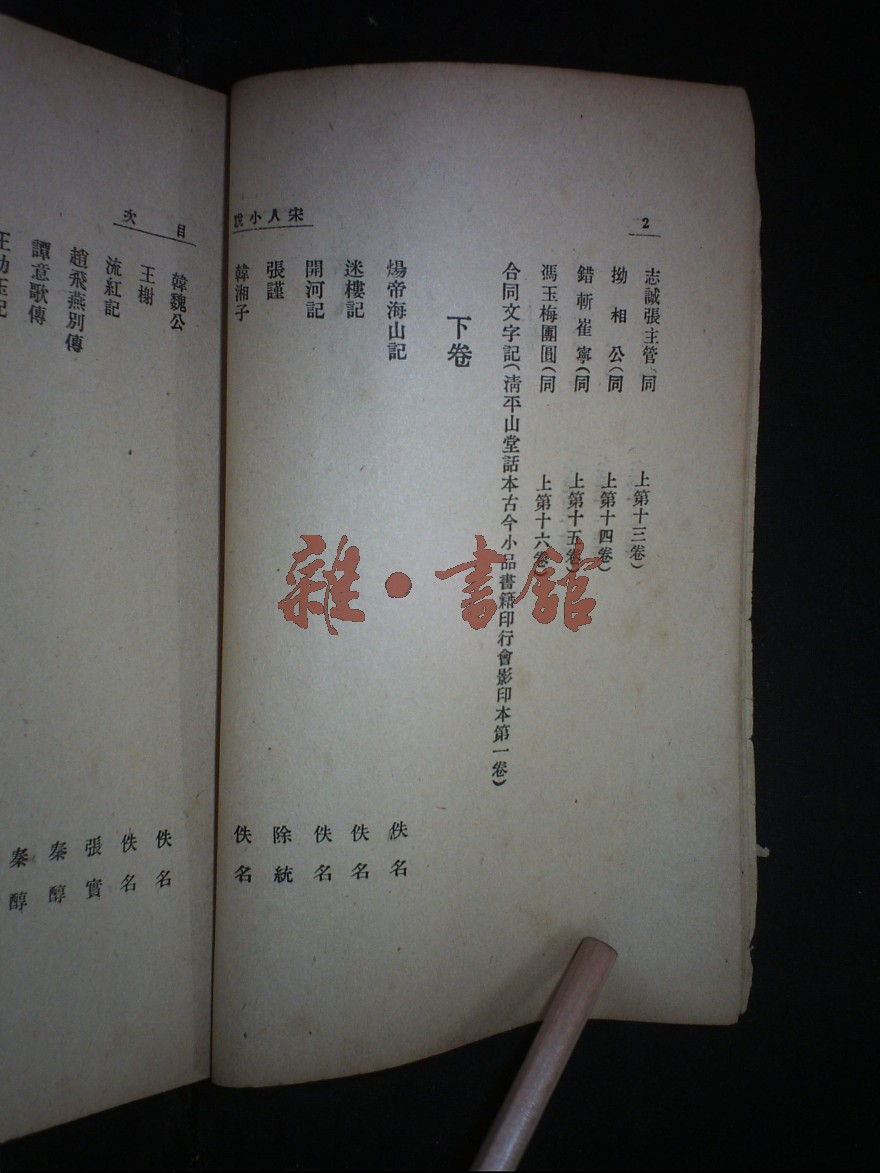 2
宋人小說
志誠張主管 同 上第十三卷)
拗相公(同 上第十四卷)
錯斬崔寧(同 上第十五卷)
馮玉梅團圓(同 上第十六卷)
合同文字記(清平山堂話本古今小品書籍印行會影印本第一卷)
下卷
煬帝海山記 佚名
迷樓記 佚名
開河記 佚名
張謹 除統
韓湘子 佚名
目次
韓魏公 佚名
王榭 佚名
流紅記 張實
趙飛燕別傳 秦醇
譚意歌傳 秦醇
雜·書館